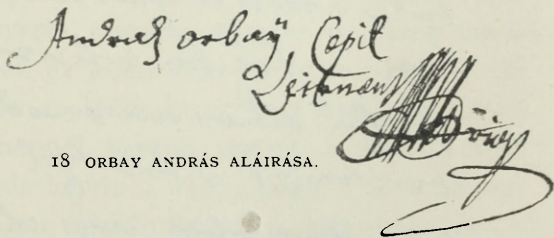 Andraß orbaÿ Cepit
Leitnant
18 ORBAY ANDRÁS ALÁIRÁSA.